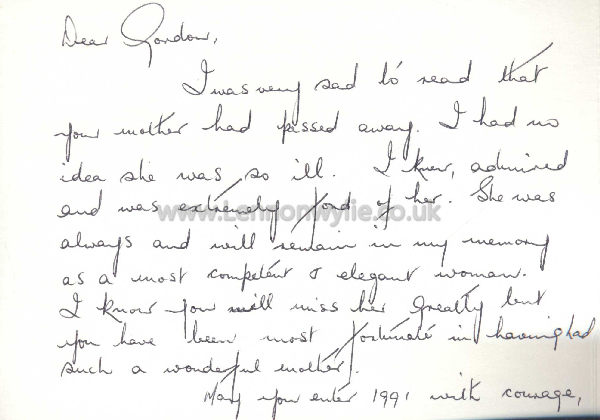 Dear Gordon,
I was very sad to read that
your mother had passed away. I had no
idea she was so ill. I knew, admired
and was extremely fond of her. She was
www.Lennonwylie.co.uk
always and will remain in my memory
as a most competent & elegant woman.
I know you will miss her greatly but
you have been most fortunate in having had
such a wonderful mother.
May you enter 1991 with courage,